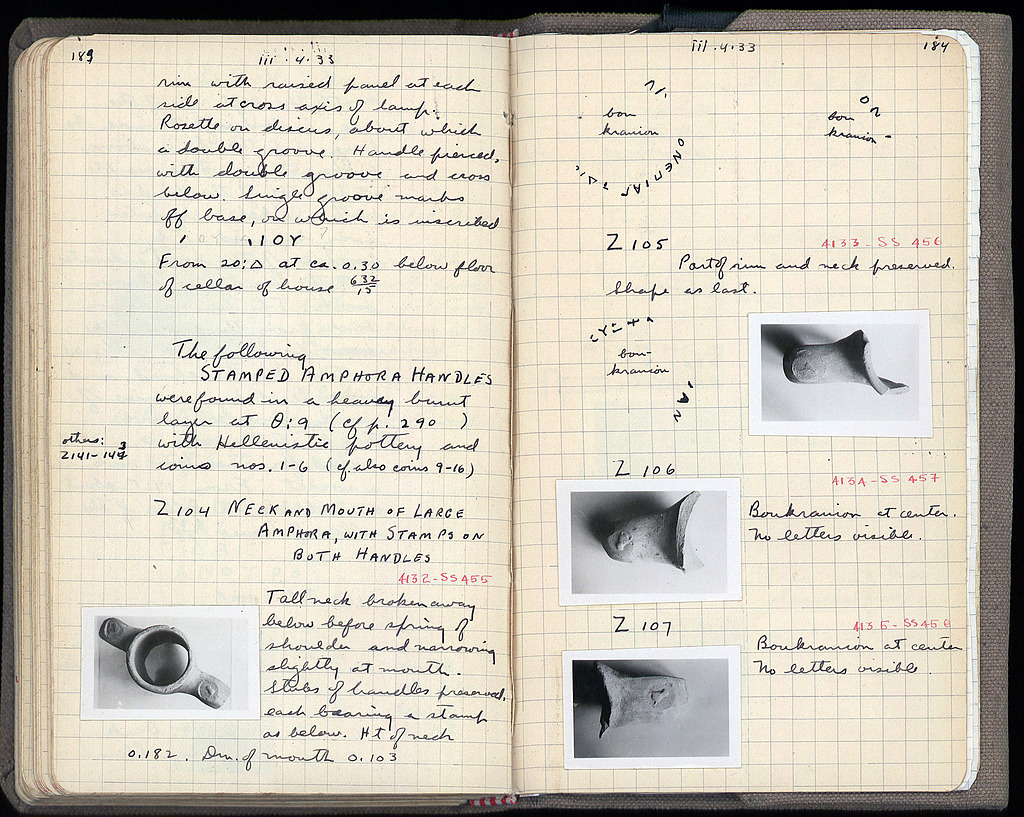 189
iii.4.33
rim with raised panel at each
side at cross axis of lamp.
Rosette on discus, about which
a double groove. Handle pierced,
with double groove and cross
below. Single groove marks
off base, on which is inscribed
ΙΟΥ
From 20:Δ at ca. 0.30 below floor
of cellar of house 632/15
The following
STAMPED AMPHORA HANDLES
were found in a heavy burnt
layer at Θ:9 (cf p. 290 )
with Hellenistic pottery and
coins nos. 1-6 (cf. also coins 9-16)
others:
Z141-143
Z 104 NECK AND MOUTH OF LARGE
AMPHORA, WITH STAMPS ON
BOTH HANDLES
4132-SS455
Tall neck broken away
below before spring of
shoulder and narrowing
slightly at mouth.
Stubs of handles preserved,
each bearing a stamp
as below. Ht of neck
0.182. Dm. of mouth 0.103
iii.4.33
184
bou
kranion
bou
kranion
Z 105
4133-SS 456
Part of rim and neck preserved.
Shape as last.
bou-
kranion
Z 106
4134-SS 457
Boukranion at center.
No letters visible.
Z 107
4135-SS458
Boukranion at center
No letters visible.